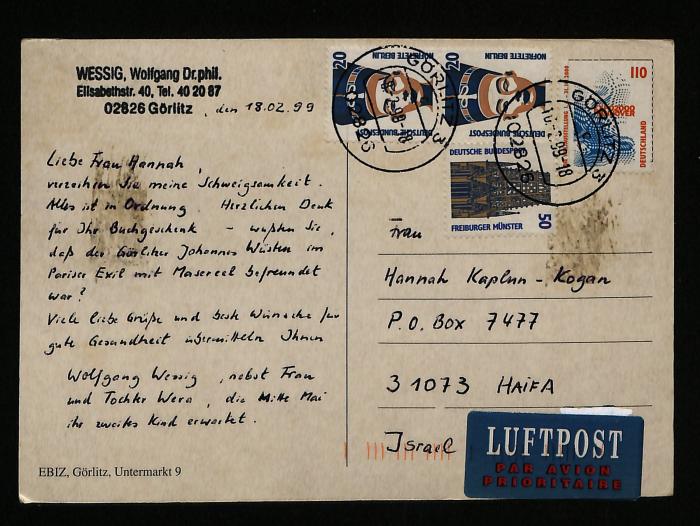 WESSIG, Wolfgang Dr.phil.
Elisabethstr. 40, Tel. 40 20 87
02826 Görlitz, den 18.02.99
Liebe Frau Hannah,
verzeihen Sie meine Schweigsamkeit.
Alles ist in Ordnung Herzlichen Dank
für Ihr Buchgeschenk – wußten Sie,
daß der Görlitzer Johannes Wüsten im
Pariser Exil mit Masereel befreundet
war?
Viele liebe Grüße und beste Wünsche für
gute Gesundheit übermitteln Ihnen
Wolfgang Wessig, nebst Frau
und Tochter Wera, die Mitte Mai
ihr zweites Kind erwartet.
EBIZ, Görlitz, Untermarkt 9
20
NOFRETETE BERLIN
DEUTSCHE BUNDESPOST
20
NOFRETETE BERLIN
DEUTSCHE BUNDESPOST
110
DEUTSCHLAND
GÖRLITZ 3
02826
GÖRLITZ 3
02826
DEUTSCHE BUNDESPOST
50
FREIBURGER MÜNSTER
Frau
Hannah Kaplun-Kogan
P.O. Box 7477
31073 HAIFA
Israel
LUFTPOST
PAR AVION
PRIORITAIRE